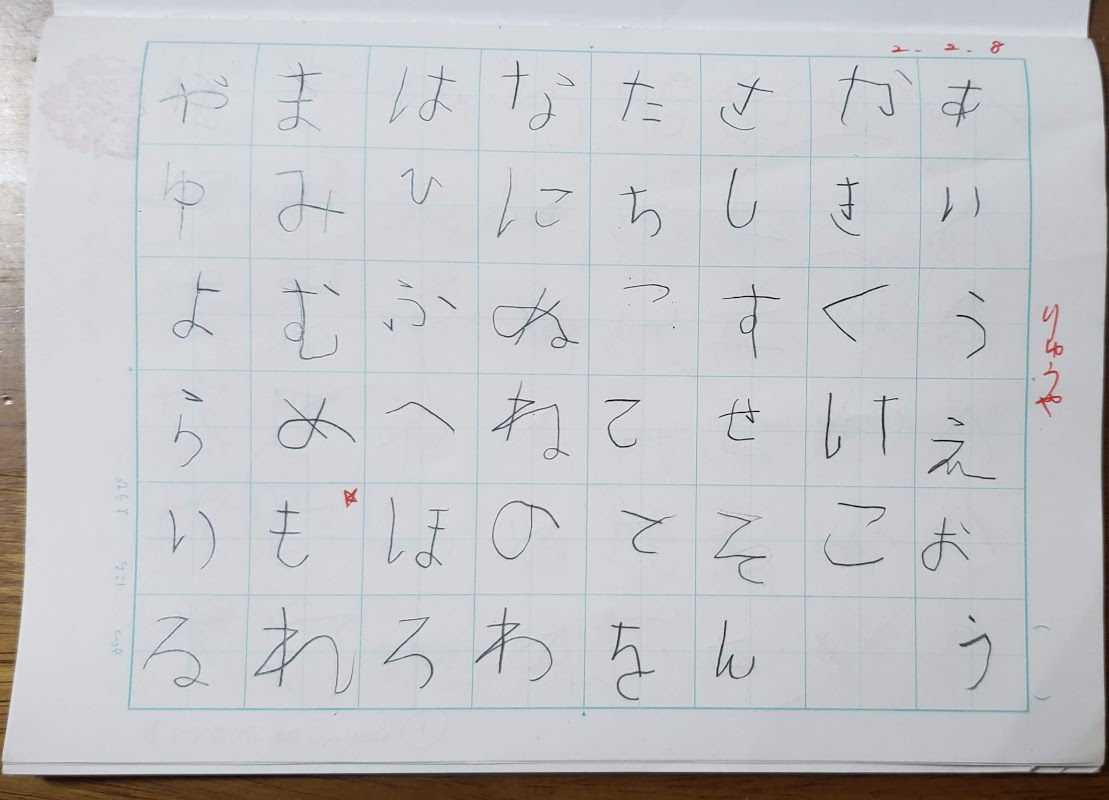 2. 2. 8
りゅうや
あいうえおう
かきくけこ
さしすせそん
たちつてとを
なにぬねのわ
はひふへほろ
まみむめもれ
やゆよらりる